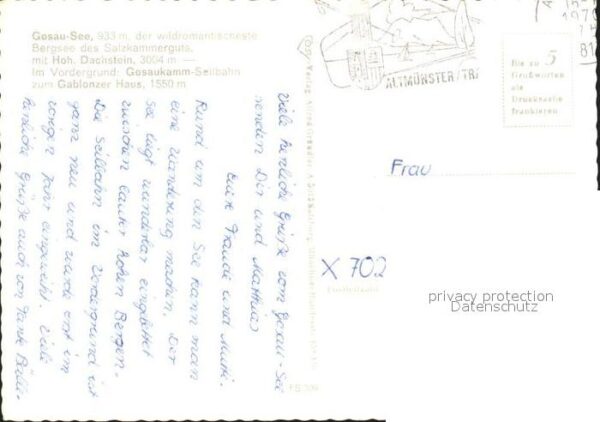 Gosau-See, 933 m, der wildromantischeste
Bergsee des Salzkammerguts,
mit Hoh. Dachstein, 3004 m —
Im Vordergrund: Gosaukamm-Seilbahn
zum Gablonzer Haus, 1550 m
ALTMÜNSTER/TR
Bis zu 5
Grußworten
als
Drucksache
frankieren
Viele herzliche Grüße vom Gosau-See
senden Dir und Matthias
Eure Traudl und Mutti.
Rund um den See kann man
eine Wanderung machen. Der
See liegt wunderbar eingebettet
zwischen lauter hohen Bergen.
Die Seilbahn im Vordergrund ist
ganz neu und wurde erst im
vorigen Jahr eingeweiht. Viele
herzliche Grüße auch von Tante
Frau
X 702
Postleitzahl
privacy protection
Datenschutz